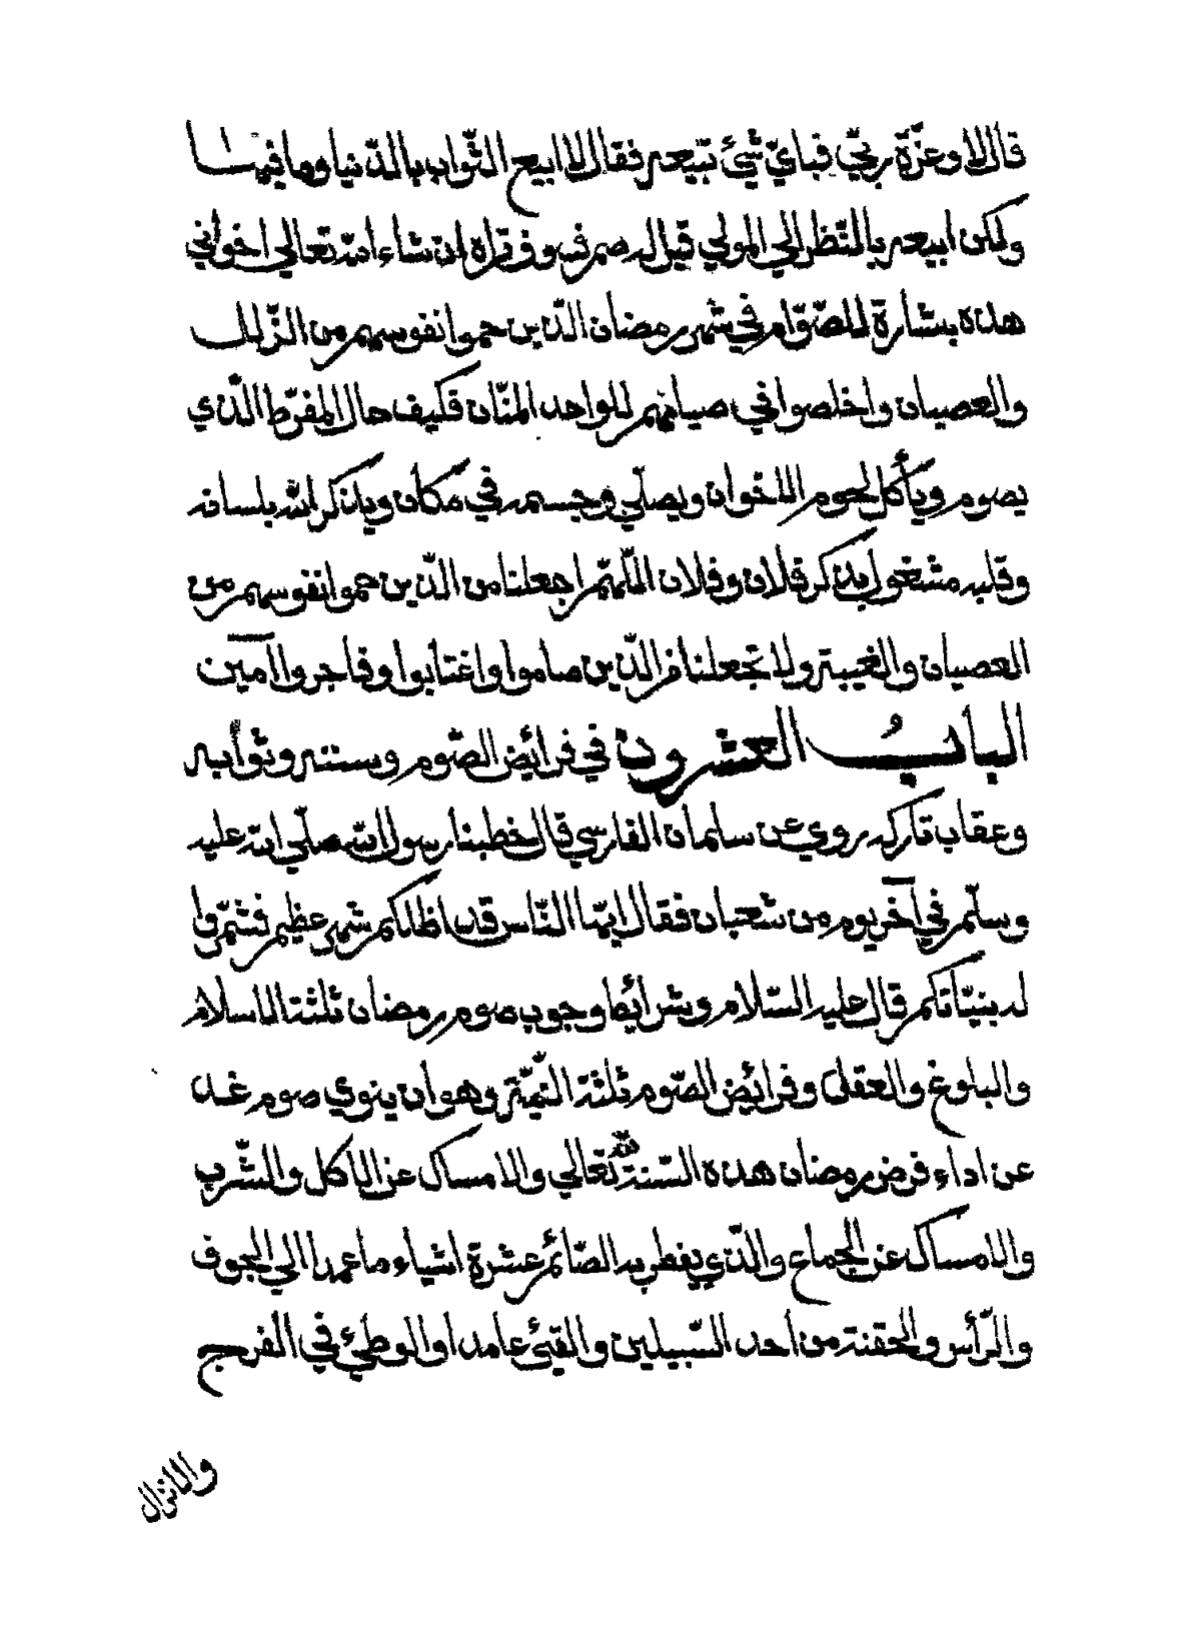 قال لا وعزّة ربّي فباي شيئ تبيعه فقال لا ابيع الثّواب بالدّنيا وما فيها
ولكن ابيعه بالنّظر الي المولي قيل له صم فسوف تراه ان شاء الله تعالي اخواني
هذه بشارة للصّوّام في شهر رمضان الذّين حموا نفوسهم من الزّلل
والعصيان واخلصوا في صيامهم للواحد المنّان فكيف حال المفرّط الذّي
يصوم ويأكل لحوم الاخوان ويصلّي وجسمه في مكان ويذكر الله بلسانه
وقلبه مشغول بذكر فلان وفلان اللّهمّ اجعلنا من الذّين حموا نفوسهم من
العصيان والغيبة ولا تجعلنا من الذّين صاموا واغتابوا وفاجروا آمين
البابُ العشرون في فرائض الصّوم وسننه وثوابه
وعقاب تاركه روي عن سليمان الفارسي قال خطبنا رسول الله صلّي الله عليه
وسلّم في آخر يوم من شعبان فقال ايّها النّاس قد اظلكم شهر عظيم فشمّروا
له بنيّاتكم قال عليه السّلام وشرائط وجوب صوم رمضان ثلثة الاسلام
والبلوغ والعقل وفرائض الصّوم ثلثة النّيّة وهو ان ينوي صوم غد
عن اداء فرض رمضان هذه السّنة لله تعالي والامساك عن الاكل والشّرب
والامساك عن الجماع والذّي يفطر به الصّائم عشرة اشياء ما عمدا الي الجوف
والرّأس والحقنة من احد السّبيلين والقيئ عامدا والوطيئ في الفرج
والانزال